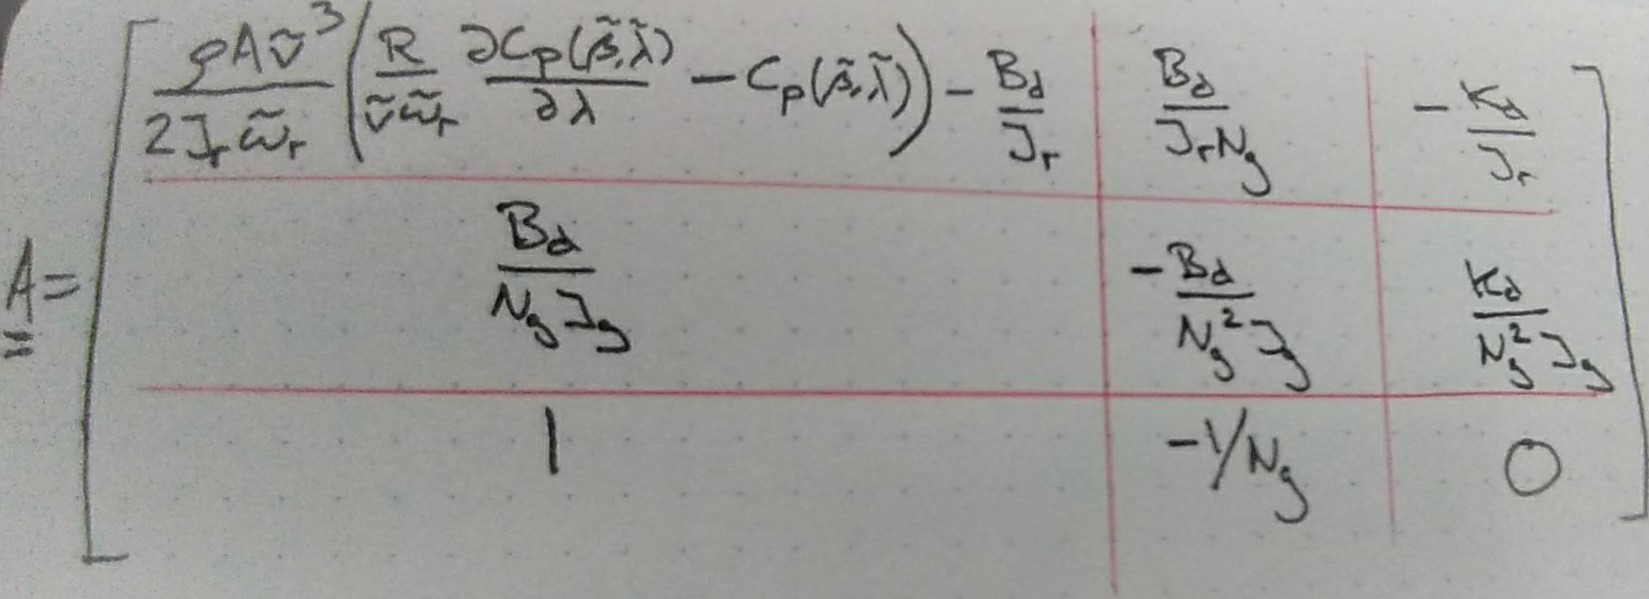 A = [ ρAṽ³/(2J_r ω̃_r) ( R/(ṽω̃_r) ∂C_p(β̃,λ̃)/∂λ − C_p(β̃,λ̃) ) − B_d/J_r   B_d/(J_r N_g)   − K_d/J_r
B_d/(N_g J_g)   −B_d/(N_g² J_g)   K_d/(N_g² J_g)
1   −1/N_g   0 ]